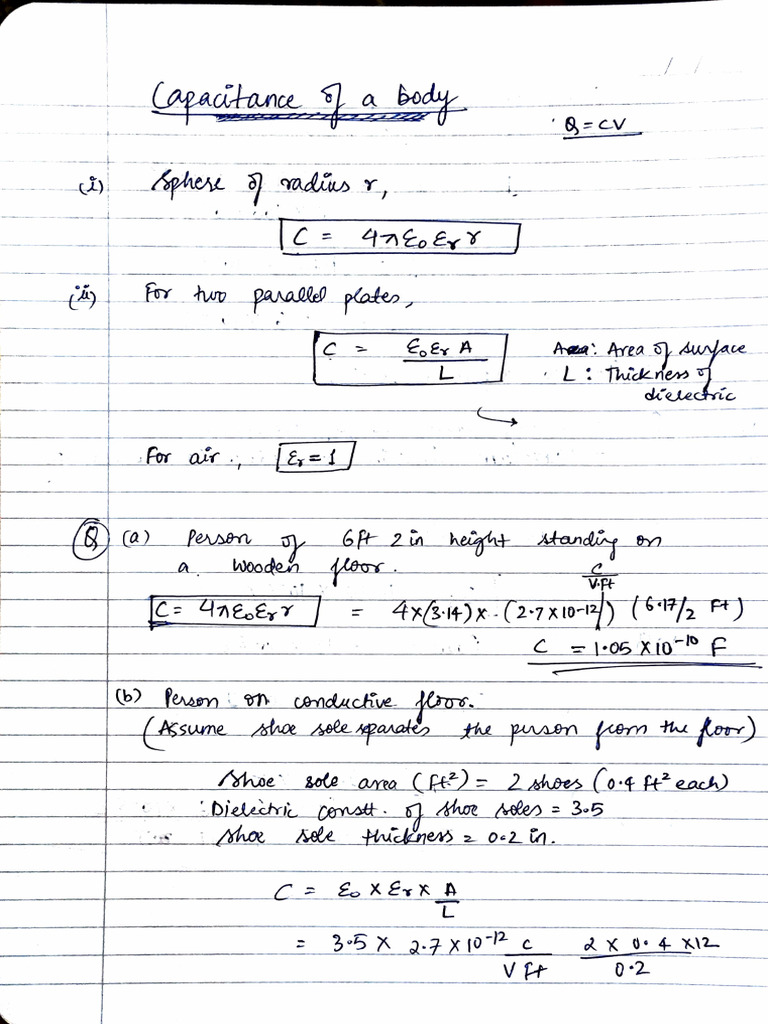 Capacitance of a body
Q = CV
(i) Sphere of radius r,
C = 4πε₀εᵣ r
(ii) For two parallel plates,
C = ε₀εᵣ A / L
A: Area of surface
L: Thickness of dielectric
For air, εᵣ = 1
Q (a) Person of 6ft 2 in height standing on
a wooden floor.
C = 4πε₀εᵣr = 4×(3.14)×(2.7×10⁻¹² C/V.ft) (6.17/2 ft)
C = 1.05 × 10⁻¹⁰ F
(b) Person on conductive floor.
(Assume shoe sole separates the person from the floor)
Shoe sole area (ft²) = 2 shoes (0.4 ft² each)
Dielectric constt. of shoe soles = 3.5
Shoe sole thickness = 0.2 in.
C = ε₀ × εᵣ × A / L
= 3.5 × 2.7 × 10⁻¹² C / V ft 2 × 0.4 × 12 / 0.2